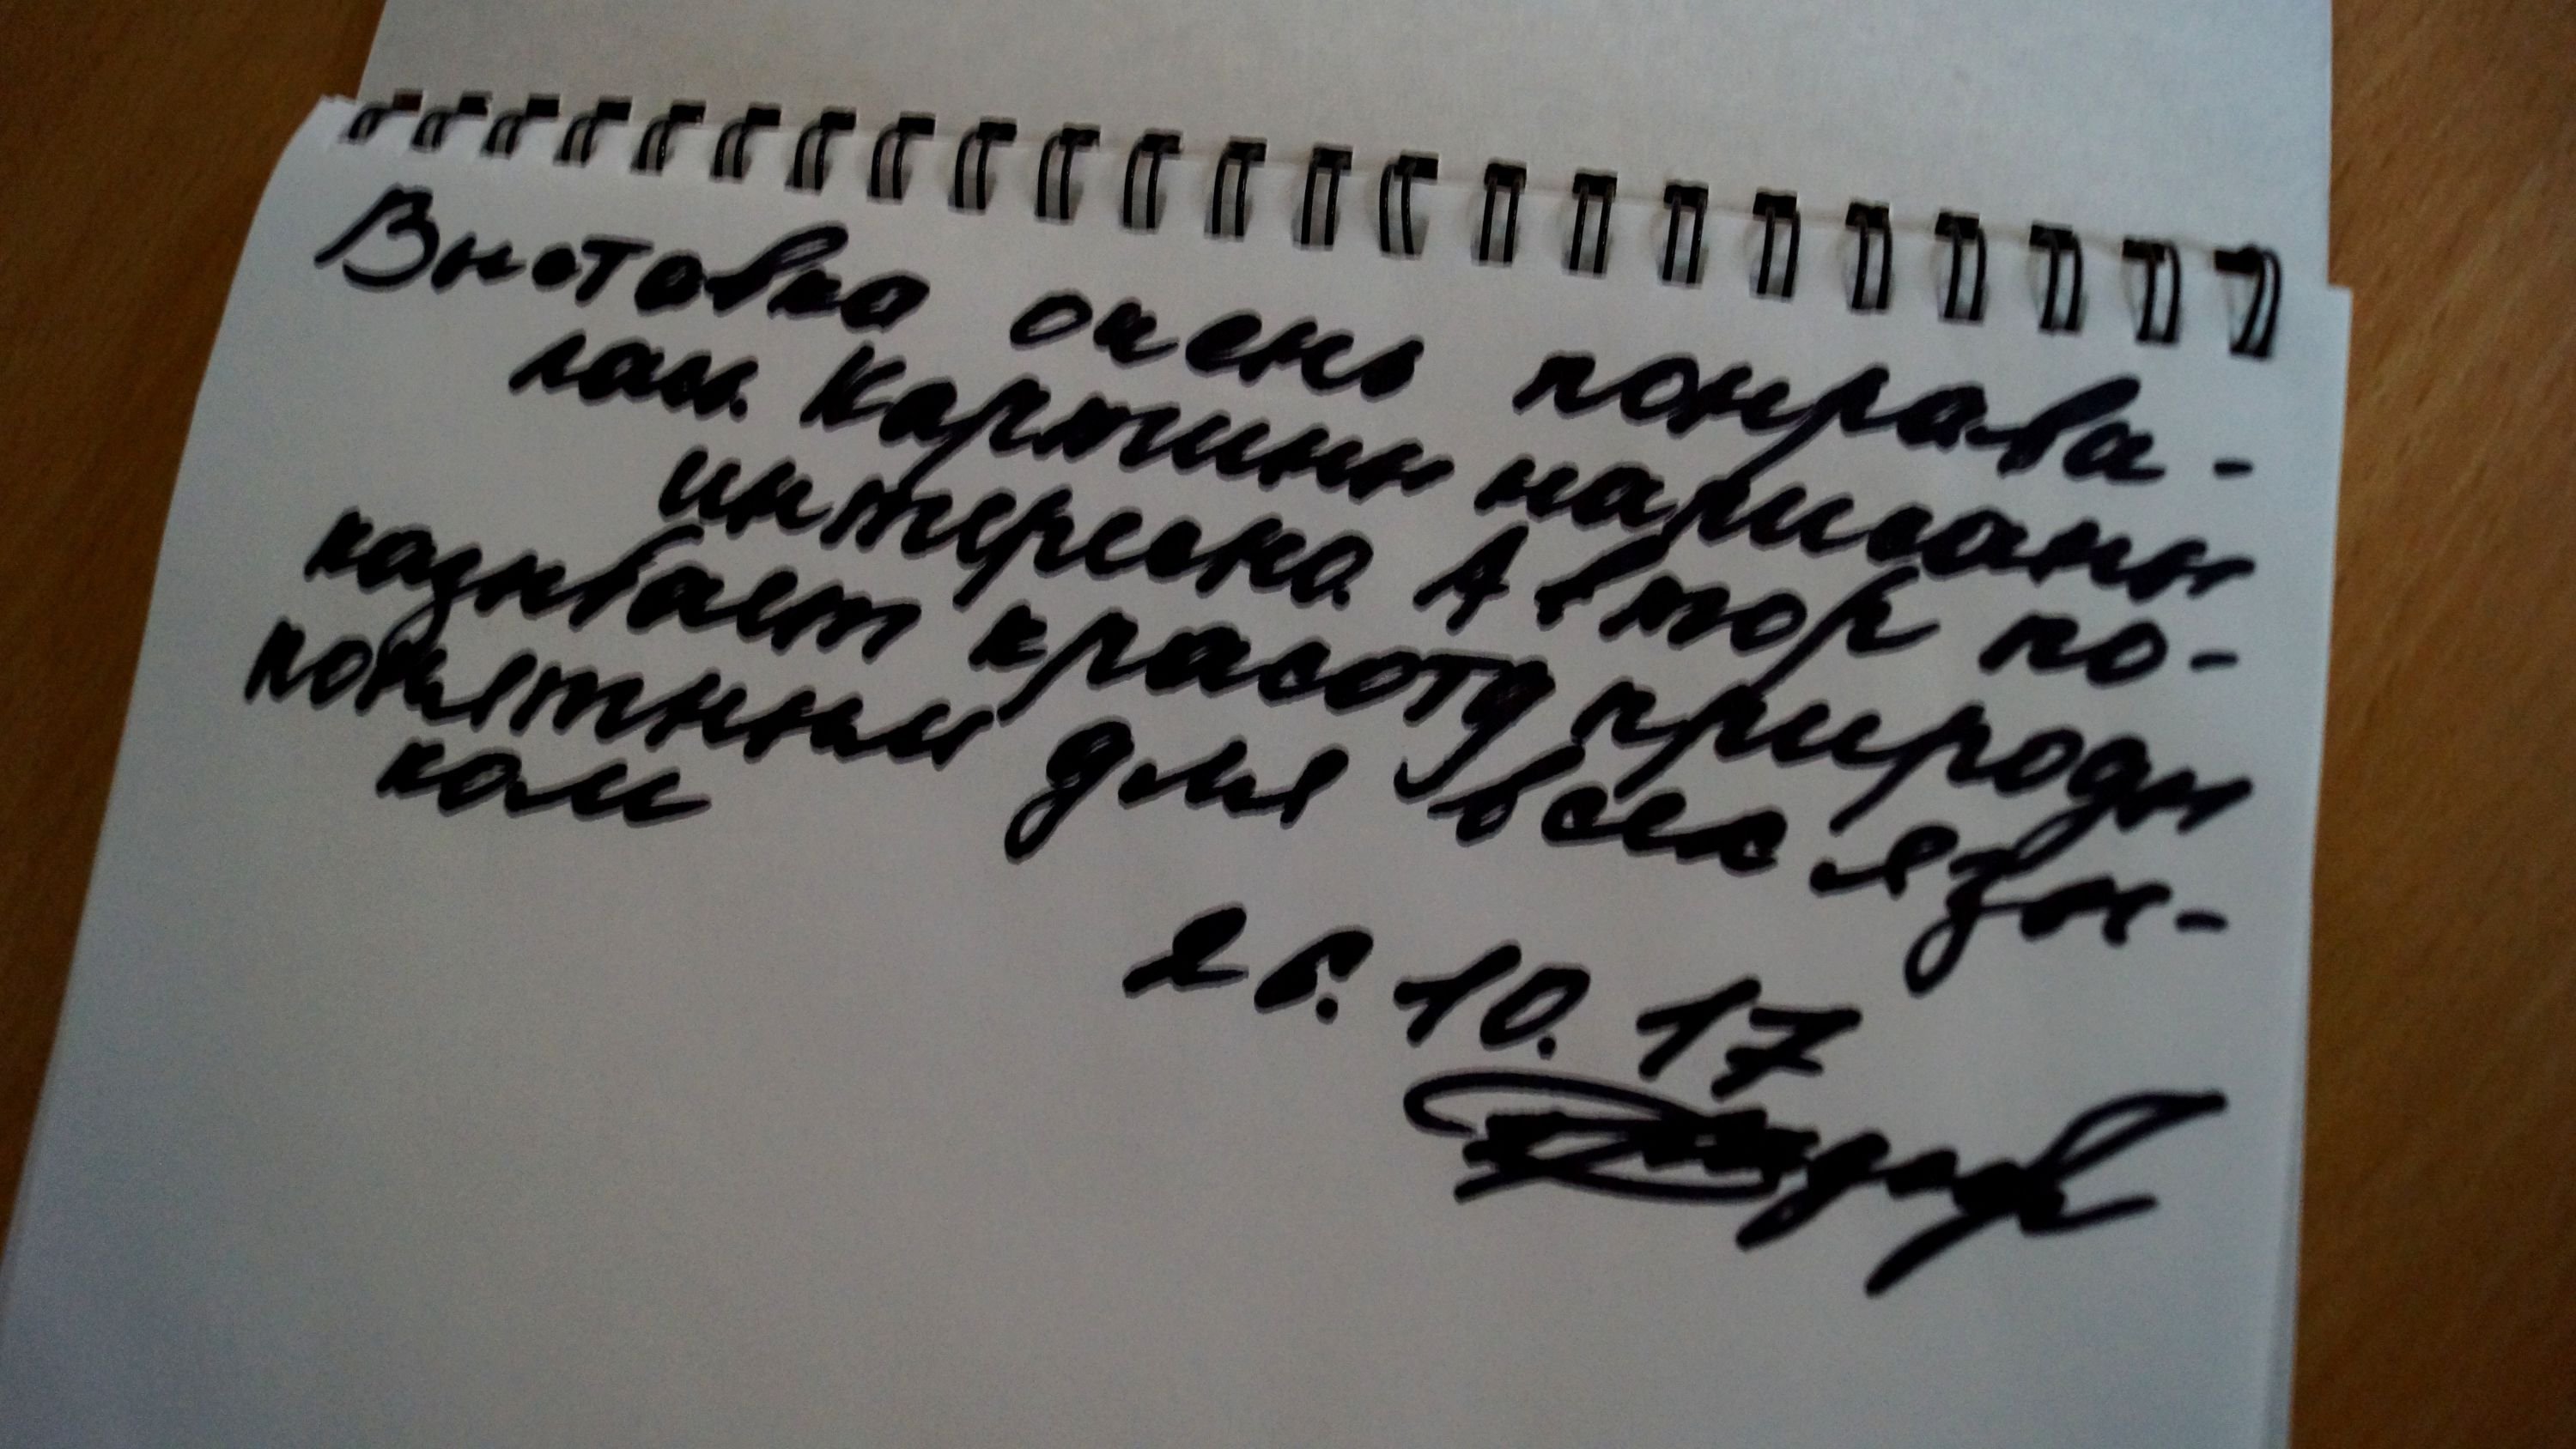 Выставка очень понрава-
лась. Картины написаны
интересно. Автор по-
казывает красоту природы
понятным для всех язы-
ком
26.10.17